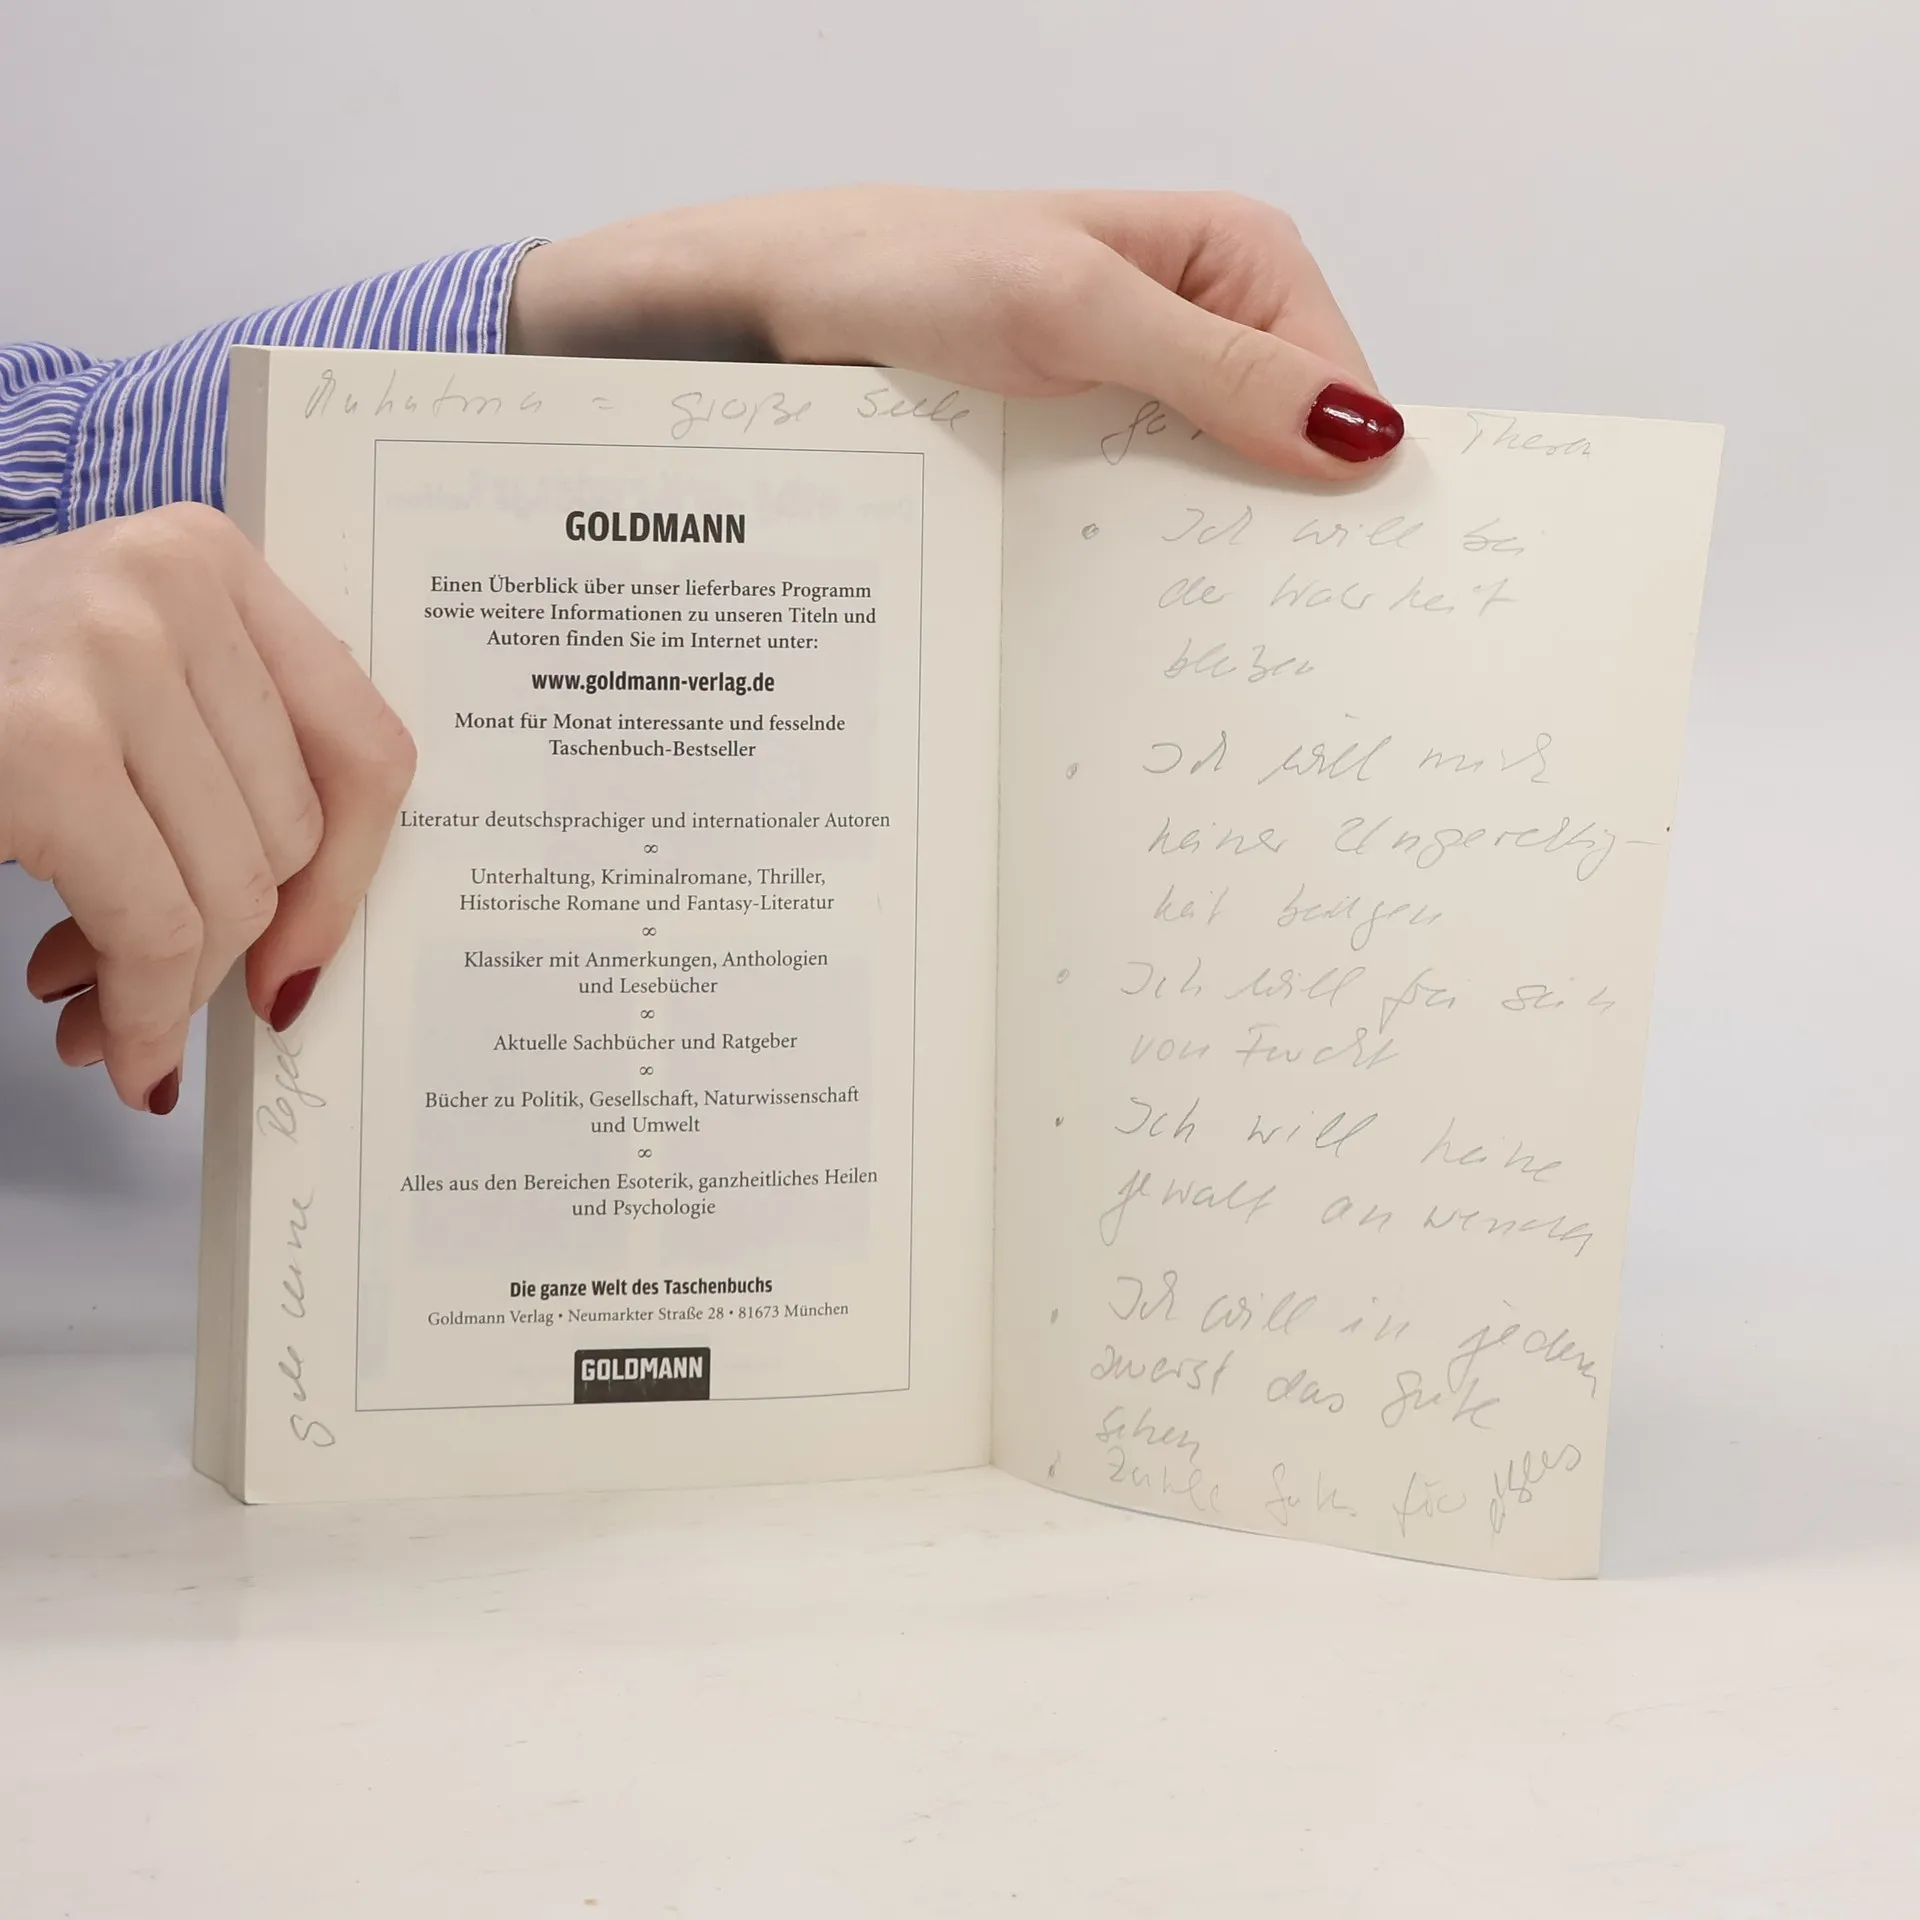 Mahatma = große Seele
GOLDMANN
Einen Überblick über unser lieferbares Programm
sowie weitere Informationen zu unseren Titeln und
Autoren finden Sie im Internet unter:
www.goldmann-verlag.de
Monat für Monat interessante und fesselnde
Taschenbuch-Bestseller
Literatur deutschsprachiger und internationaler Autoren
∞
Unterhaltung, Kriminalromane, Thriller,
Historische Romane und Fantasy-Literatur
∞
Klassiker mit Anmerkungen, Anthologien
und Lesebücher
∞
Aktuelle Sachbücher und Ratgeber
∞
Bücher zu Politik, Gesellschaft, Naturwissenschaft
und Umwelt
∞
Alles aus den Bereichen Esoterik, ganzheitliches Heilen
und Psychologie
Die ganze Welt des Taschenbuchs
Goldmann Verlag • Neumarkter Straße 28 • 81673 München
GOLDMANN
• Ich will bei
der Wahrheit
bleiben
• Ich will mich
keiner Ungerechtig-
keit beugen
• Ich will frei sein
von Furcht
• Ich will keine
gewalt anwenden
• Ich will in jedem
zuerst das Gute
sehen
• für